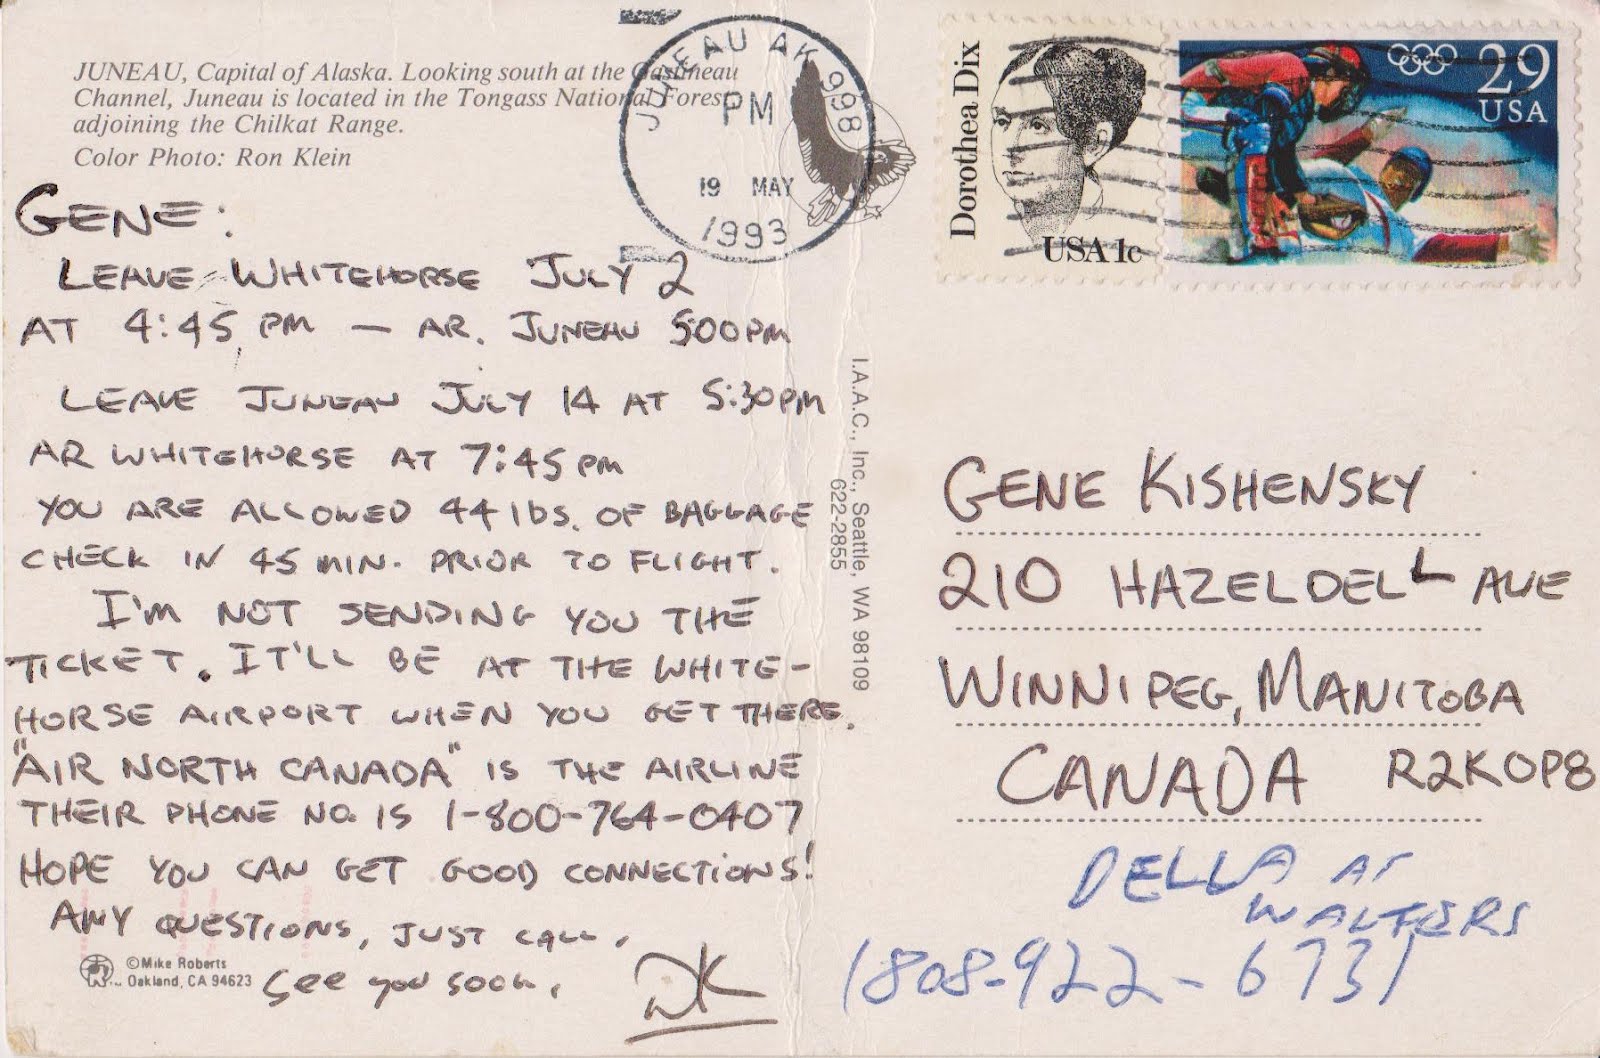 JUNEAU, Capital of Alaska. Looking south at the Gastineau
Channel, Juneau is located in the Tongass National Forest
adjoining the Chilkat Range.
Color Photo: Ron Klein
GENE:
LEAVE WHITEHORSE JULY 2
AT 4:45 PM — AR. JUNEAU 5:00PM
LEAVE JUNEAU JULY 14 AT 5:30PM
AR WHITEHORSE AT 7:45 PM
YOU ARE ALLOWED 44 lbs. OF BAGGAGE
CHECK IN 45 MIN. PRIOR TO FLIGHT.
I'M NOT SENDING YOU THE
TICKET. IT'LL BE AT THE WHITE-
HORSE AIRPORT WHEN YOU GET THERE.
"AIR NORTH CANADA" IS THE AIRLINE
THEIR PHONE NO. IS 1-800-764-0407
HOPE YOU CAN GET GOOD CONNECTIONS!
ANY QUESTIONS, JUST CALL.
See you soon,
DK
©Mike Roberts
Oakland, CA 94623
I.A.A.C., Inc., Seattle, WA 98109
622-2855
JUNEAU AK 998
PM
19 MAY
1993
Dorothea Dix
USA 1c
29
USA
GENE KISHENSKY
210 HAZELDELL AVE
WINNIPEG, MANITOBA
CANADA R2K0P8
DELLA AT
WALTERS
1808-922-6731